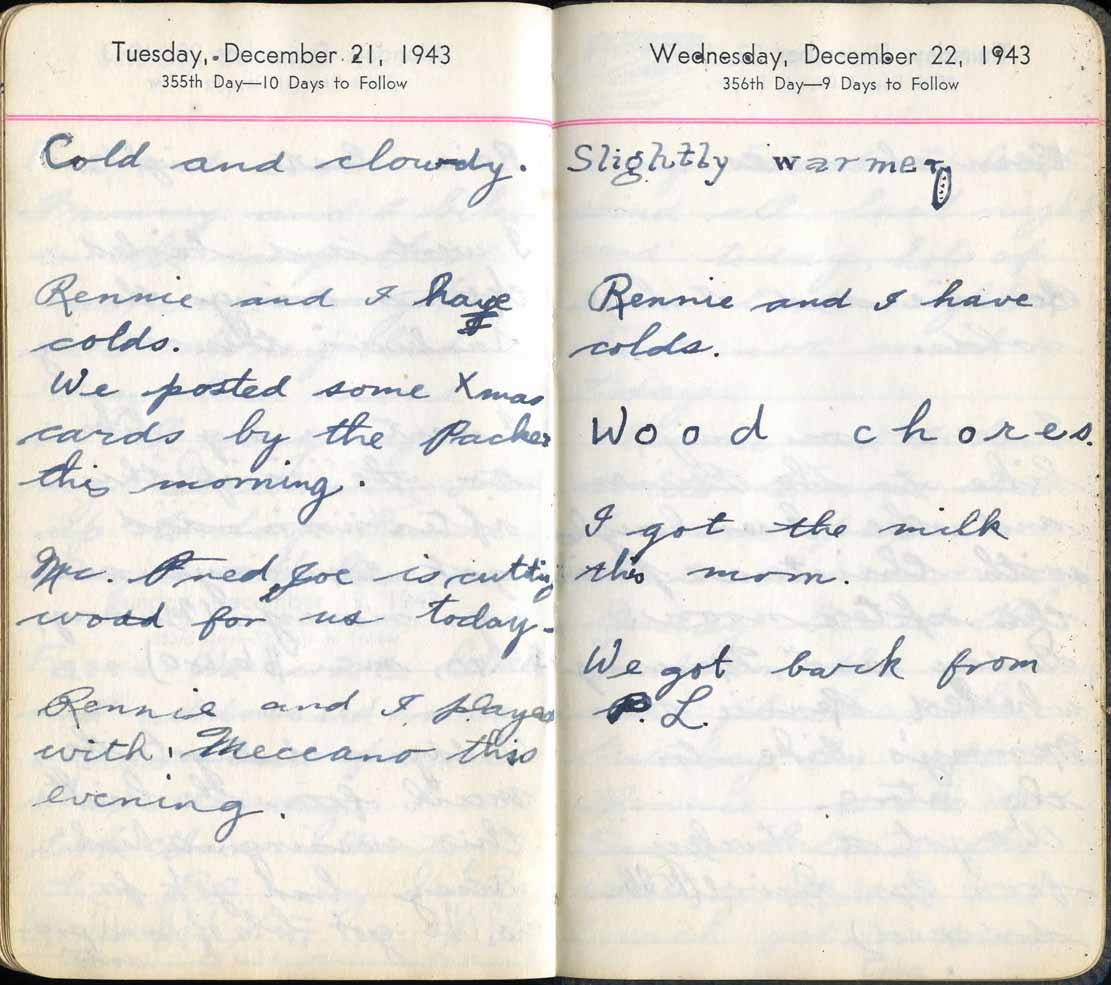 Tuesday, December 21, 1943
355th Day—10 Days to Follow
Cold and clowdy.
Rennie and I have
colds.
We posted some Xmas
cards by the Packer
this morning.
Mc. Fred, Joe is cutting
wood for us today.
Rennie and I played
with Meccano this
evening.
Wednesday, December 22, 1943
356th Day—9 Days to Follow
Slightly warmer,
Rennie and I have
colds.
Wood chores.
I got the milk
this morn.
We got back from
P.L.